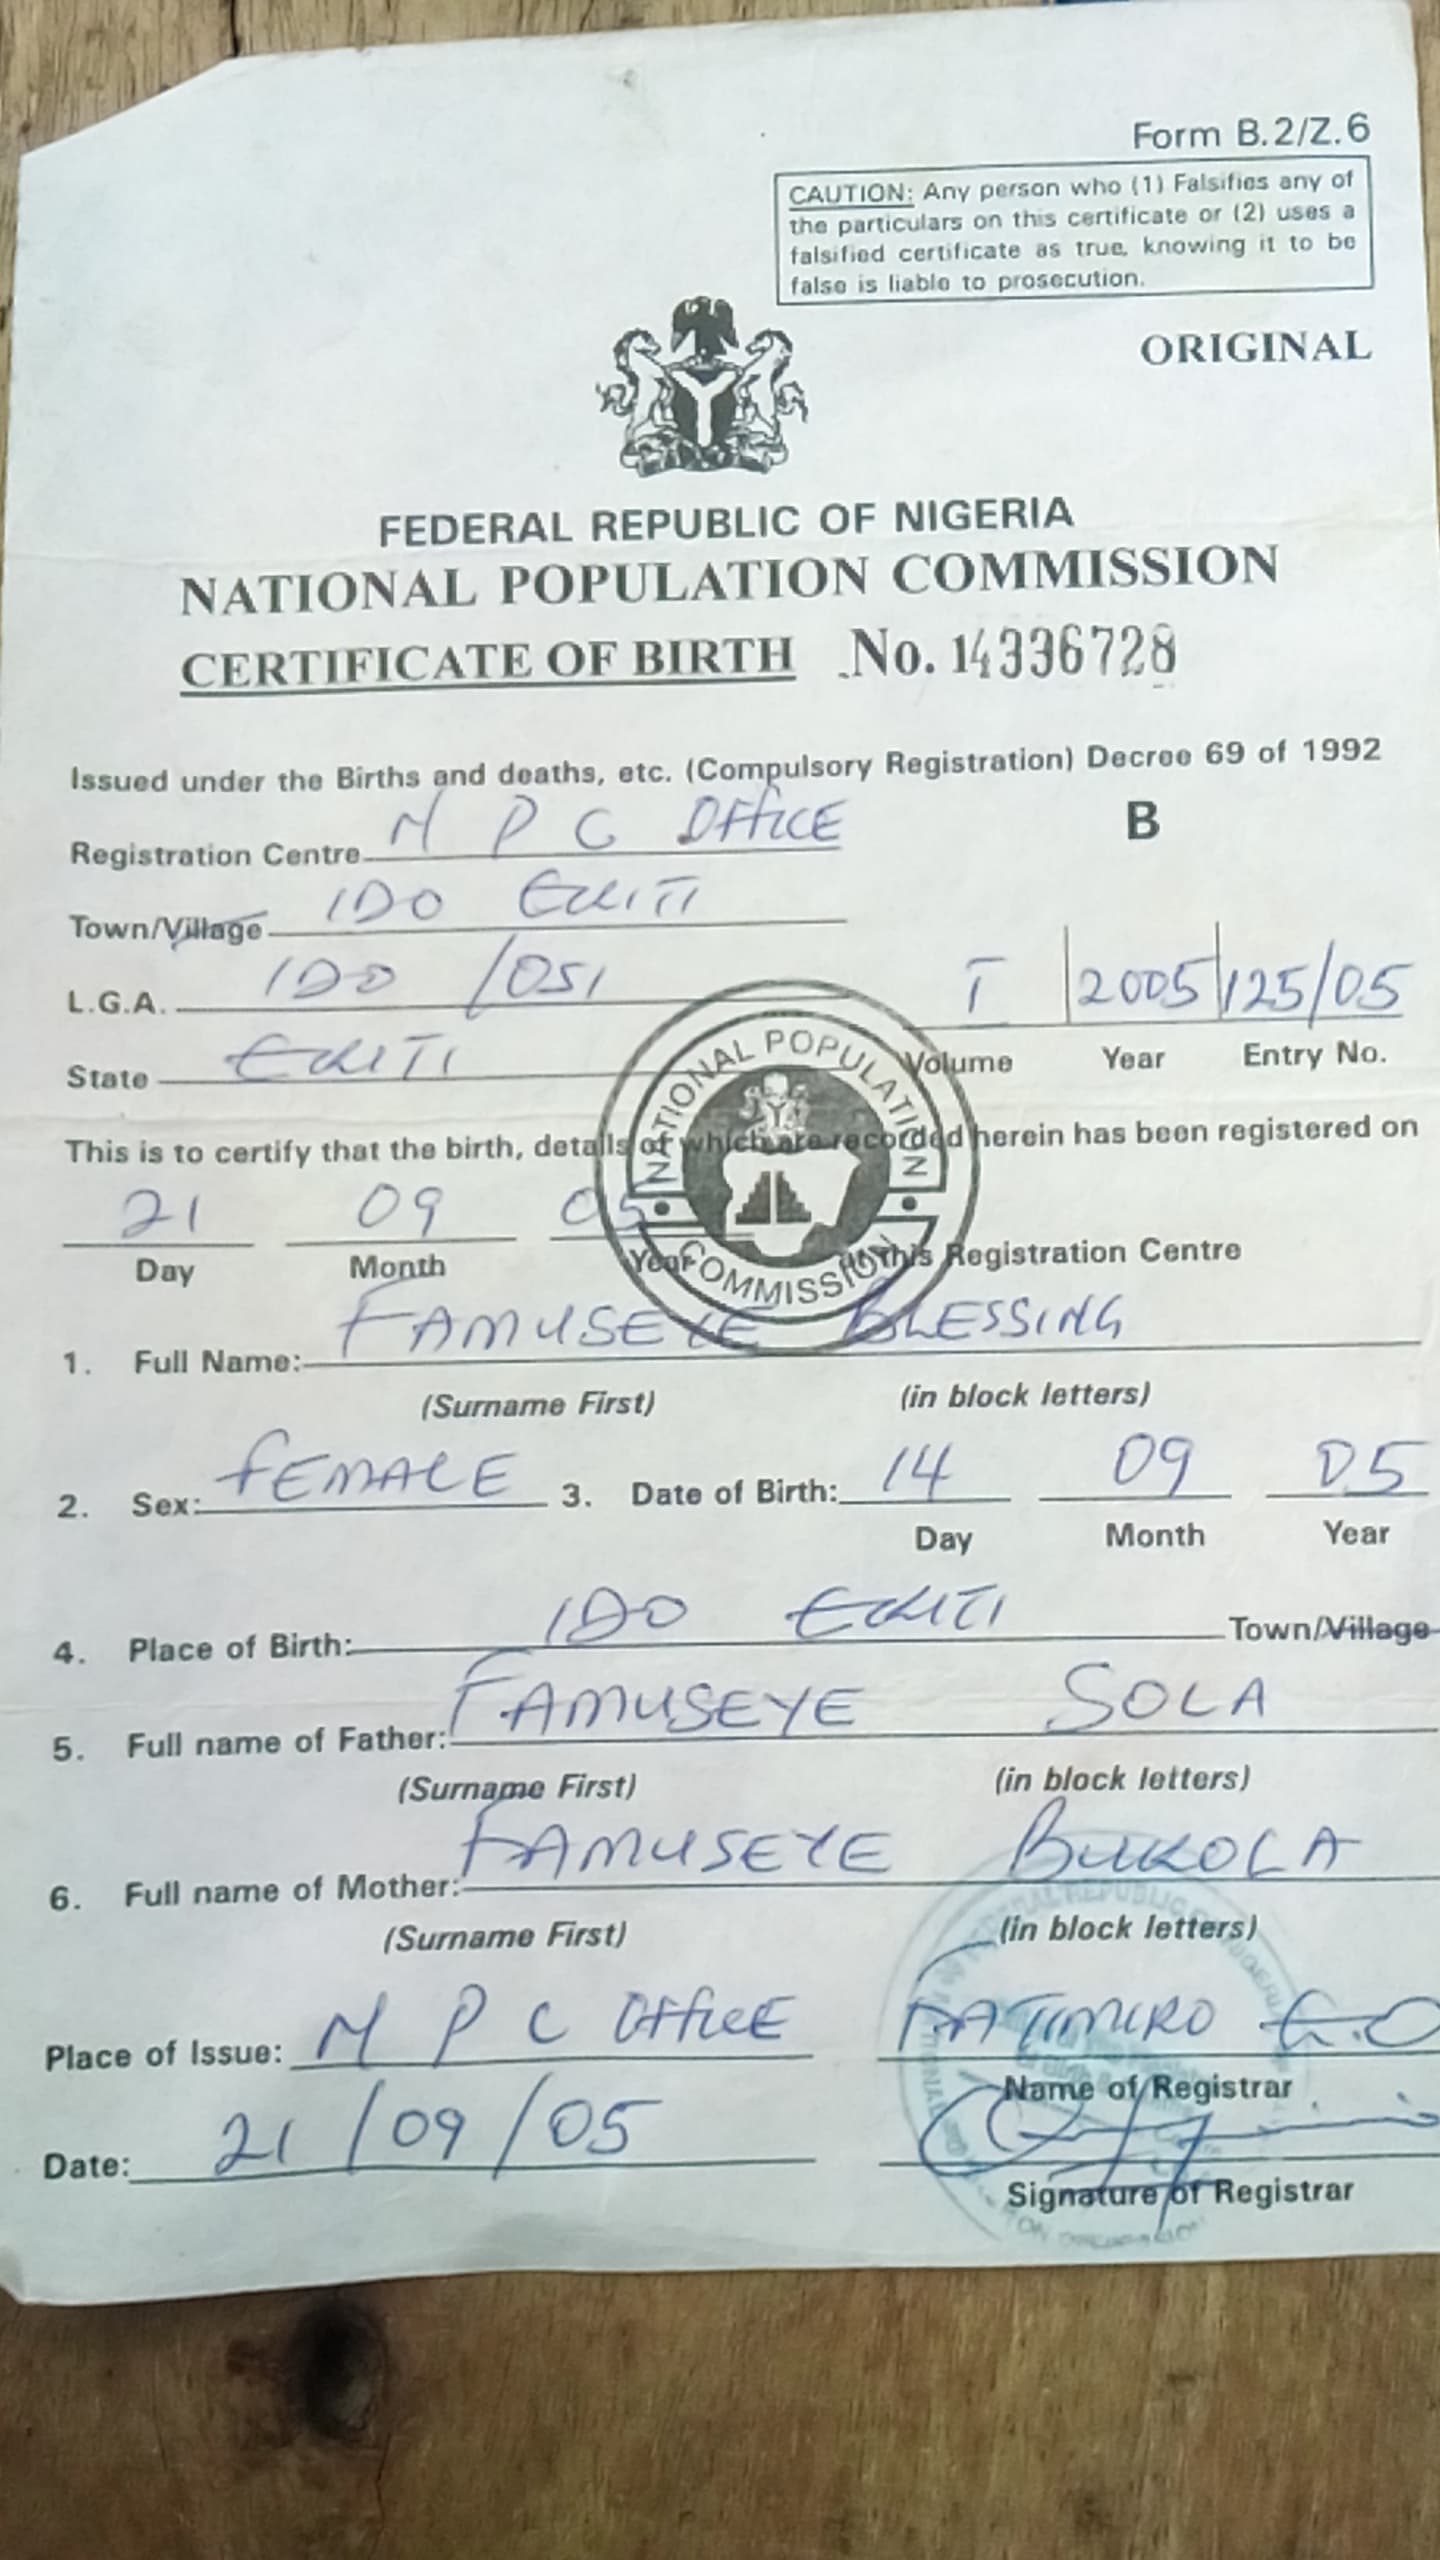 Form B.2/Z.6
CAUTION: Any person who (1) Falsifies any of
the particulars on this certificate or (2) uses a
falsified certificate as true, knowing it to be
false is liable to prosecution.
ORIGINAL
FEDERAL REPUBLIC OF NIGERIA
NATIONAL POPULATION COMMISSION
CERTIFICATE OF BIRTH No. 14336728
Issued under the Births and deaths, etc. (Compulsory Registration) Decree 69 of 1992
Registration Centre N P C OFFICE
B
Town/Village IDO EKITI
L.G.A. IDO /OSI
I 2005 125/05
State EKITI
Volume Year Entry No.
This is to certify that the birth, details of which are recorded herein has been registered on
21 09 05
Day Month Year this Registration Centre
NATIONAL POPULATION
COMMISSION
1. Full Name: FAMUSEYE BLESSING
(Surname First) (in block letters)
2. Sex: FEMALE 3. Date of Birth: 14 09 05
Day Month Year
4. Place of Birth: IDO EKITI Town/Village
5. Full name of Father: FAMUSEYE SOLA
(Surname First) (in block letters)
6. Full name of Mother: FAMUSEYE BUKOLA
(Surname First) (in block letters)
Place of Issue: N P C OFFICE
Name of Registrar
Date: 21/09/05
Signature of Registrar